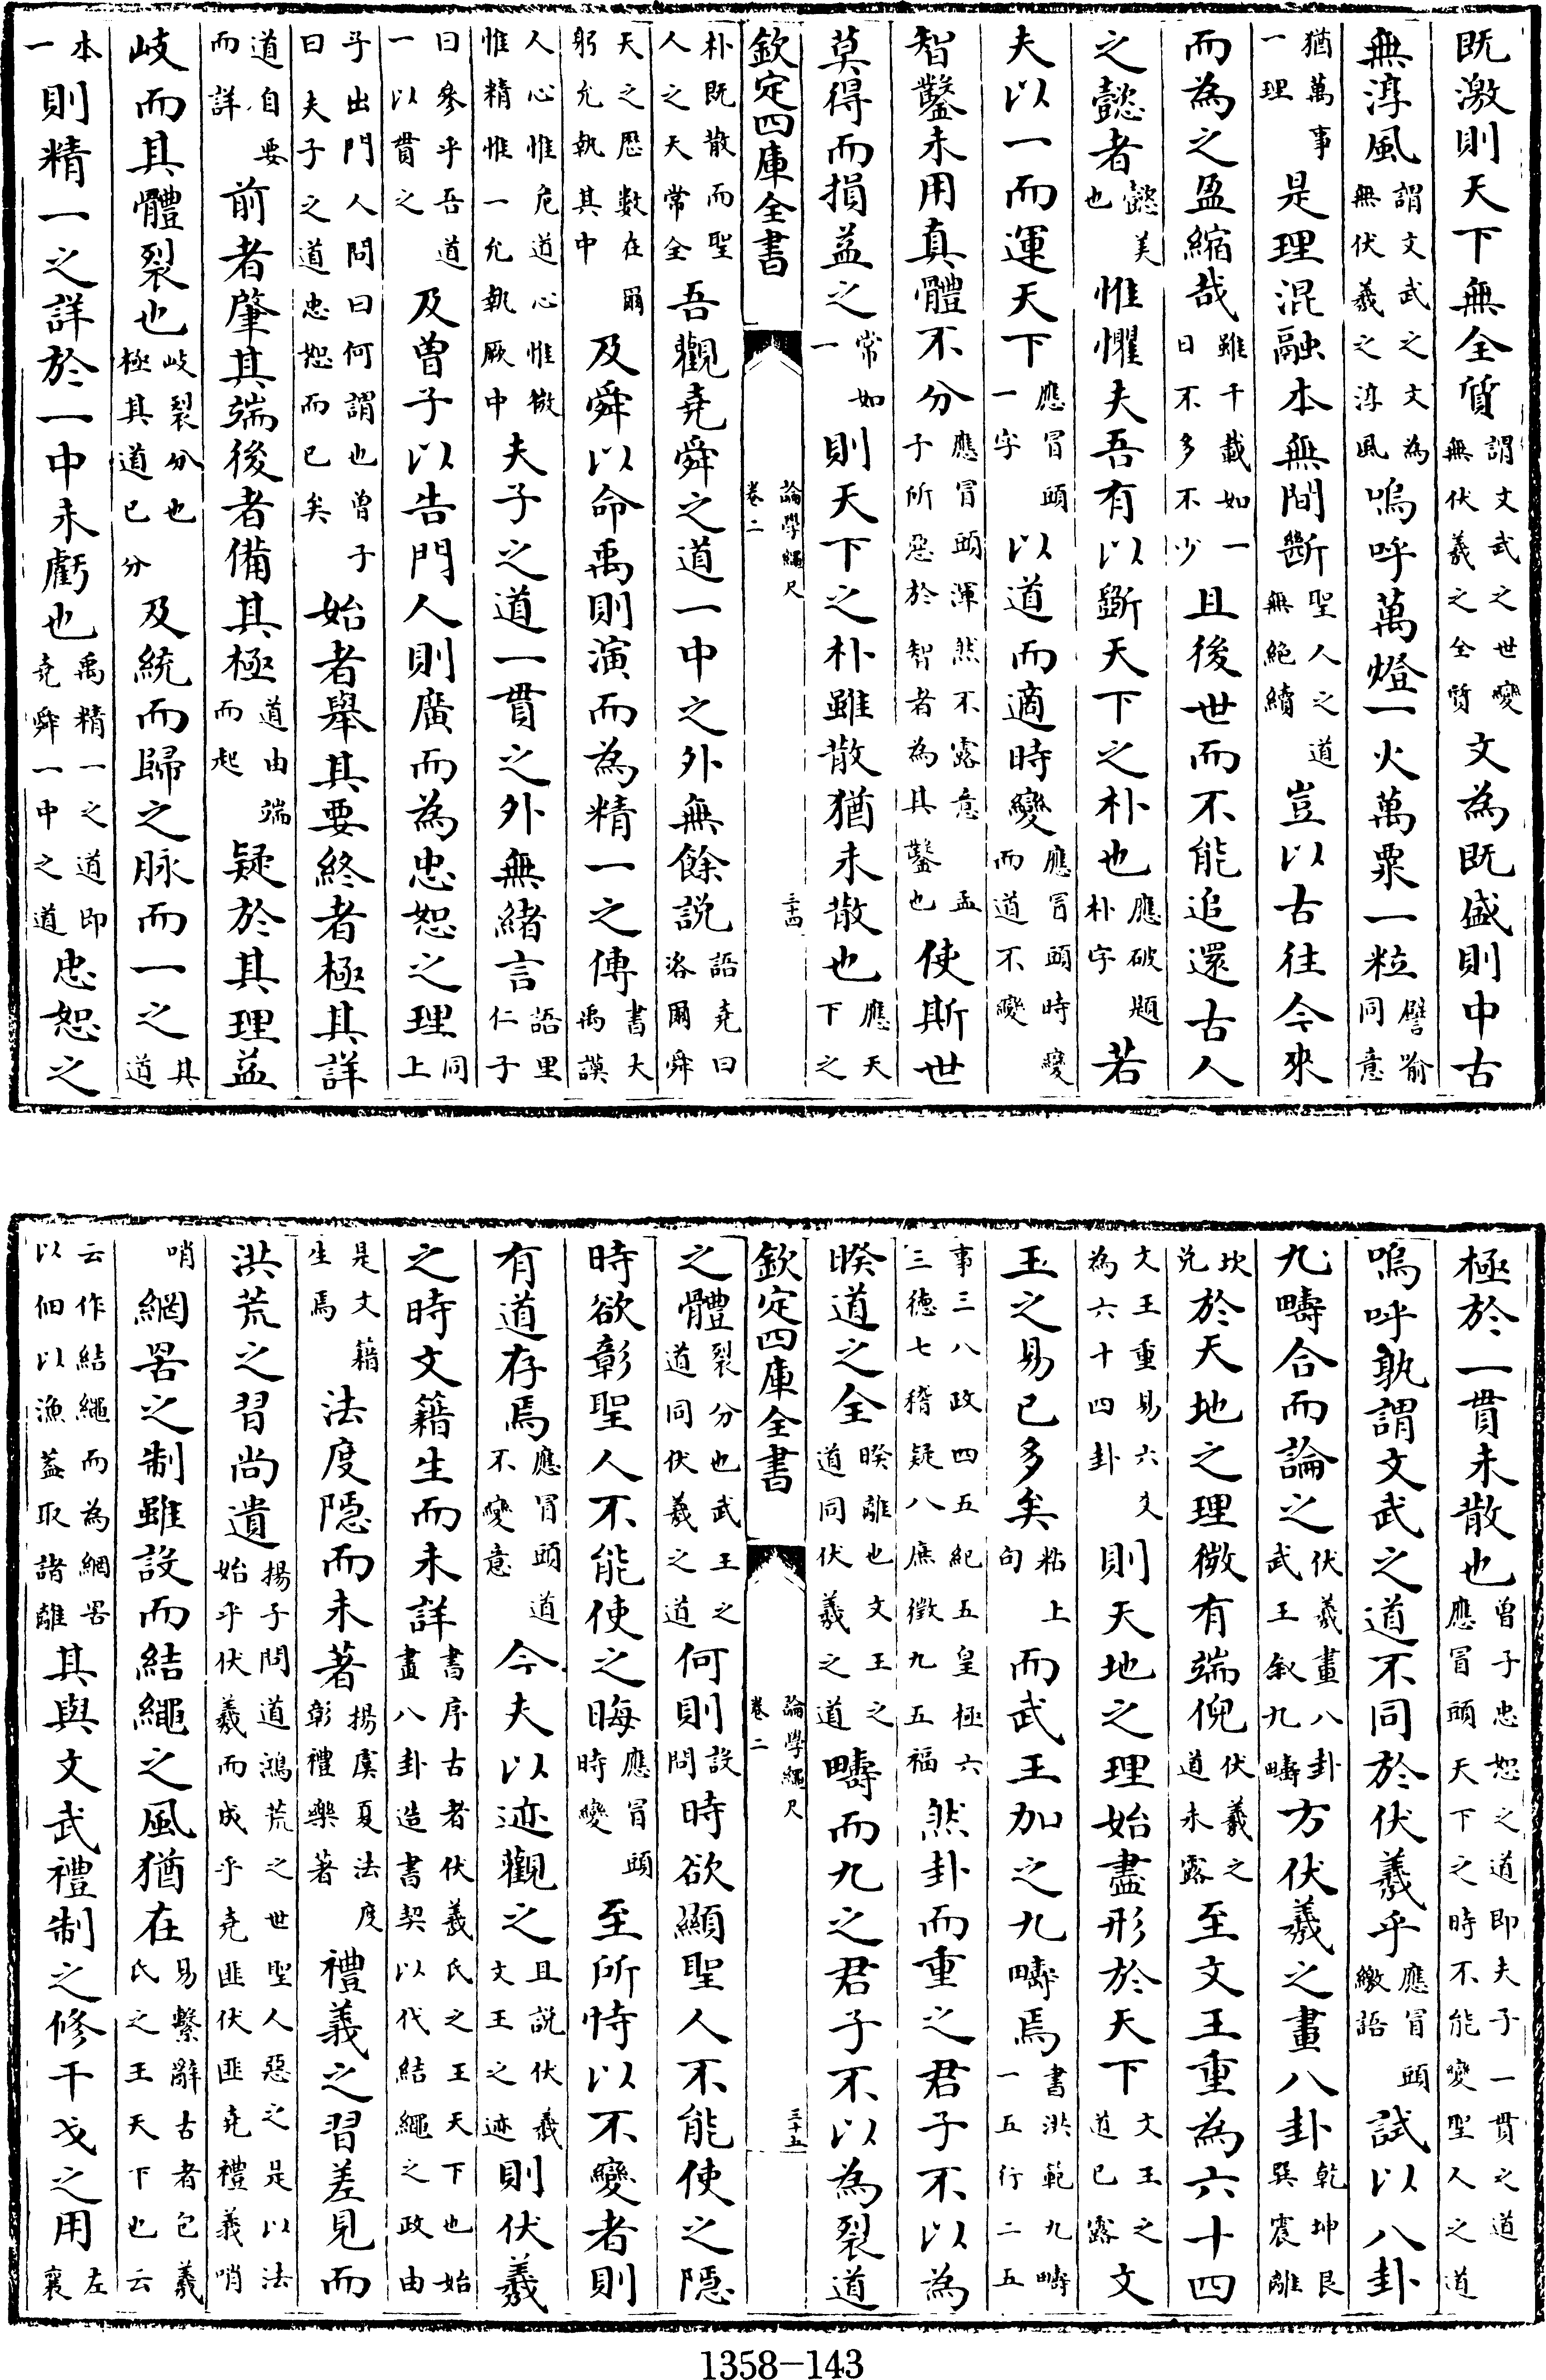 既激則天下無全質謂文武之世變無伏羲之全質文為既盛則中古
無淳風謂文武之文為無伏羲之淳風嗚呼萬燈一火萬粟一粒譬喻同意
猶萬事一理是理混融本無間斷聖人之道無絶續豈以古往今來
而為之盈縮哉雖千載如一日不多不少且後世而不能追還古人
之懿者懿美也惟懼夫吾有以斵天下之朴也應破題朴字若
夫以一而運天下應冒頭一字以道而適時變應冒頭時變而道不變
智鑿未用真體不分應冒頭渾然不露意孟子所惡於智者為其鑿也使斯世
莫得而損益之常如一則天下之朴雖散猶未散也應天下之
欽定四庫全書 論學繩尺 卷二 三十四
朴既散而聖人之天常全吾觀堯舜之道一中之外無餘説語堯曰咨爾舜
天之厯數在爾躬允執其中及舜以命禹則演而為精一之傳書大禹謨
人心惟危道心惟微惟精惟一允執厥中夫子之道一貫之外無緒言語里仁子
曰參乎吾道一以貫之及曽子以告門人則廣而為忠恕之理同上
子出門人問曰何謂也曽子曰夫子之道忠恕而已矣始者舉其要終者極其詳
道自要而詳前者肇其端後者備其極道由端而起疑於其理益
岐而其體裂也岐裂分也極其道已分及統而歸之脉而一之其道
本一則精一之詳於一中未虧也禹精一之道即堯舜一中之道忠恕之
極於一貫未散也曽子忠恕之道即夫子一貫之道應冒頭天下之時不能變聖人之道
嗚呼孰謂文武之道不同於伏羲乎應冒頭繳語試以八卦
九疇合而論之伏羲畫八卦武王叙九疇方伏羲之畫八卦乾坤艮巽震離
坎兌於天地之理微有端倪伏羲之道未露至文王重為六十四
文王重易六爻為六十四卦則天地之理始盡形於天下文王之道已露文
王之易已多矣粘上句而武王加之九疇焉書洪範九疇一五行二五
事三八政四五紀五皇極六三德七稽疑八庶徵九五福然卦而重之君子不以為
暌道之全暌離也文王之道同伏羲之道疇而九之君子不以為裂道
欽定四庫全書 論學繩尺 卷二 三十五
之體裂分也武王之道同伏羲之道何則設問時欲顯聖人不能使之隠
時欲彰聖人不能使之晦應冒頭時變至所恃以不變者則
有道存焉應冒頭道不變意今夫以迹觀之且説伏羲文王之迹則伏羲
之時文籍生而未詳書序古者伏羲氏之王天下也始畫八卦造書契以代結繩之政由
是文籍生焉法度隠而未著揚虞夏法度彰禮樂著禮義之習差見而
洪荒之習尚遺揚子問道鴻荒之世聖人惡之是以法始乎伏羲而成乎堯匪伏匪堯禮義哨
哨網罟之制雖設而結繩之風猶在易繫辭古者包羲氏之王天下也云云
作結繩而為網罟以佃以漁蓋取諸離其與文武禮制之修干戈之用左襄
1358-143